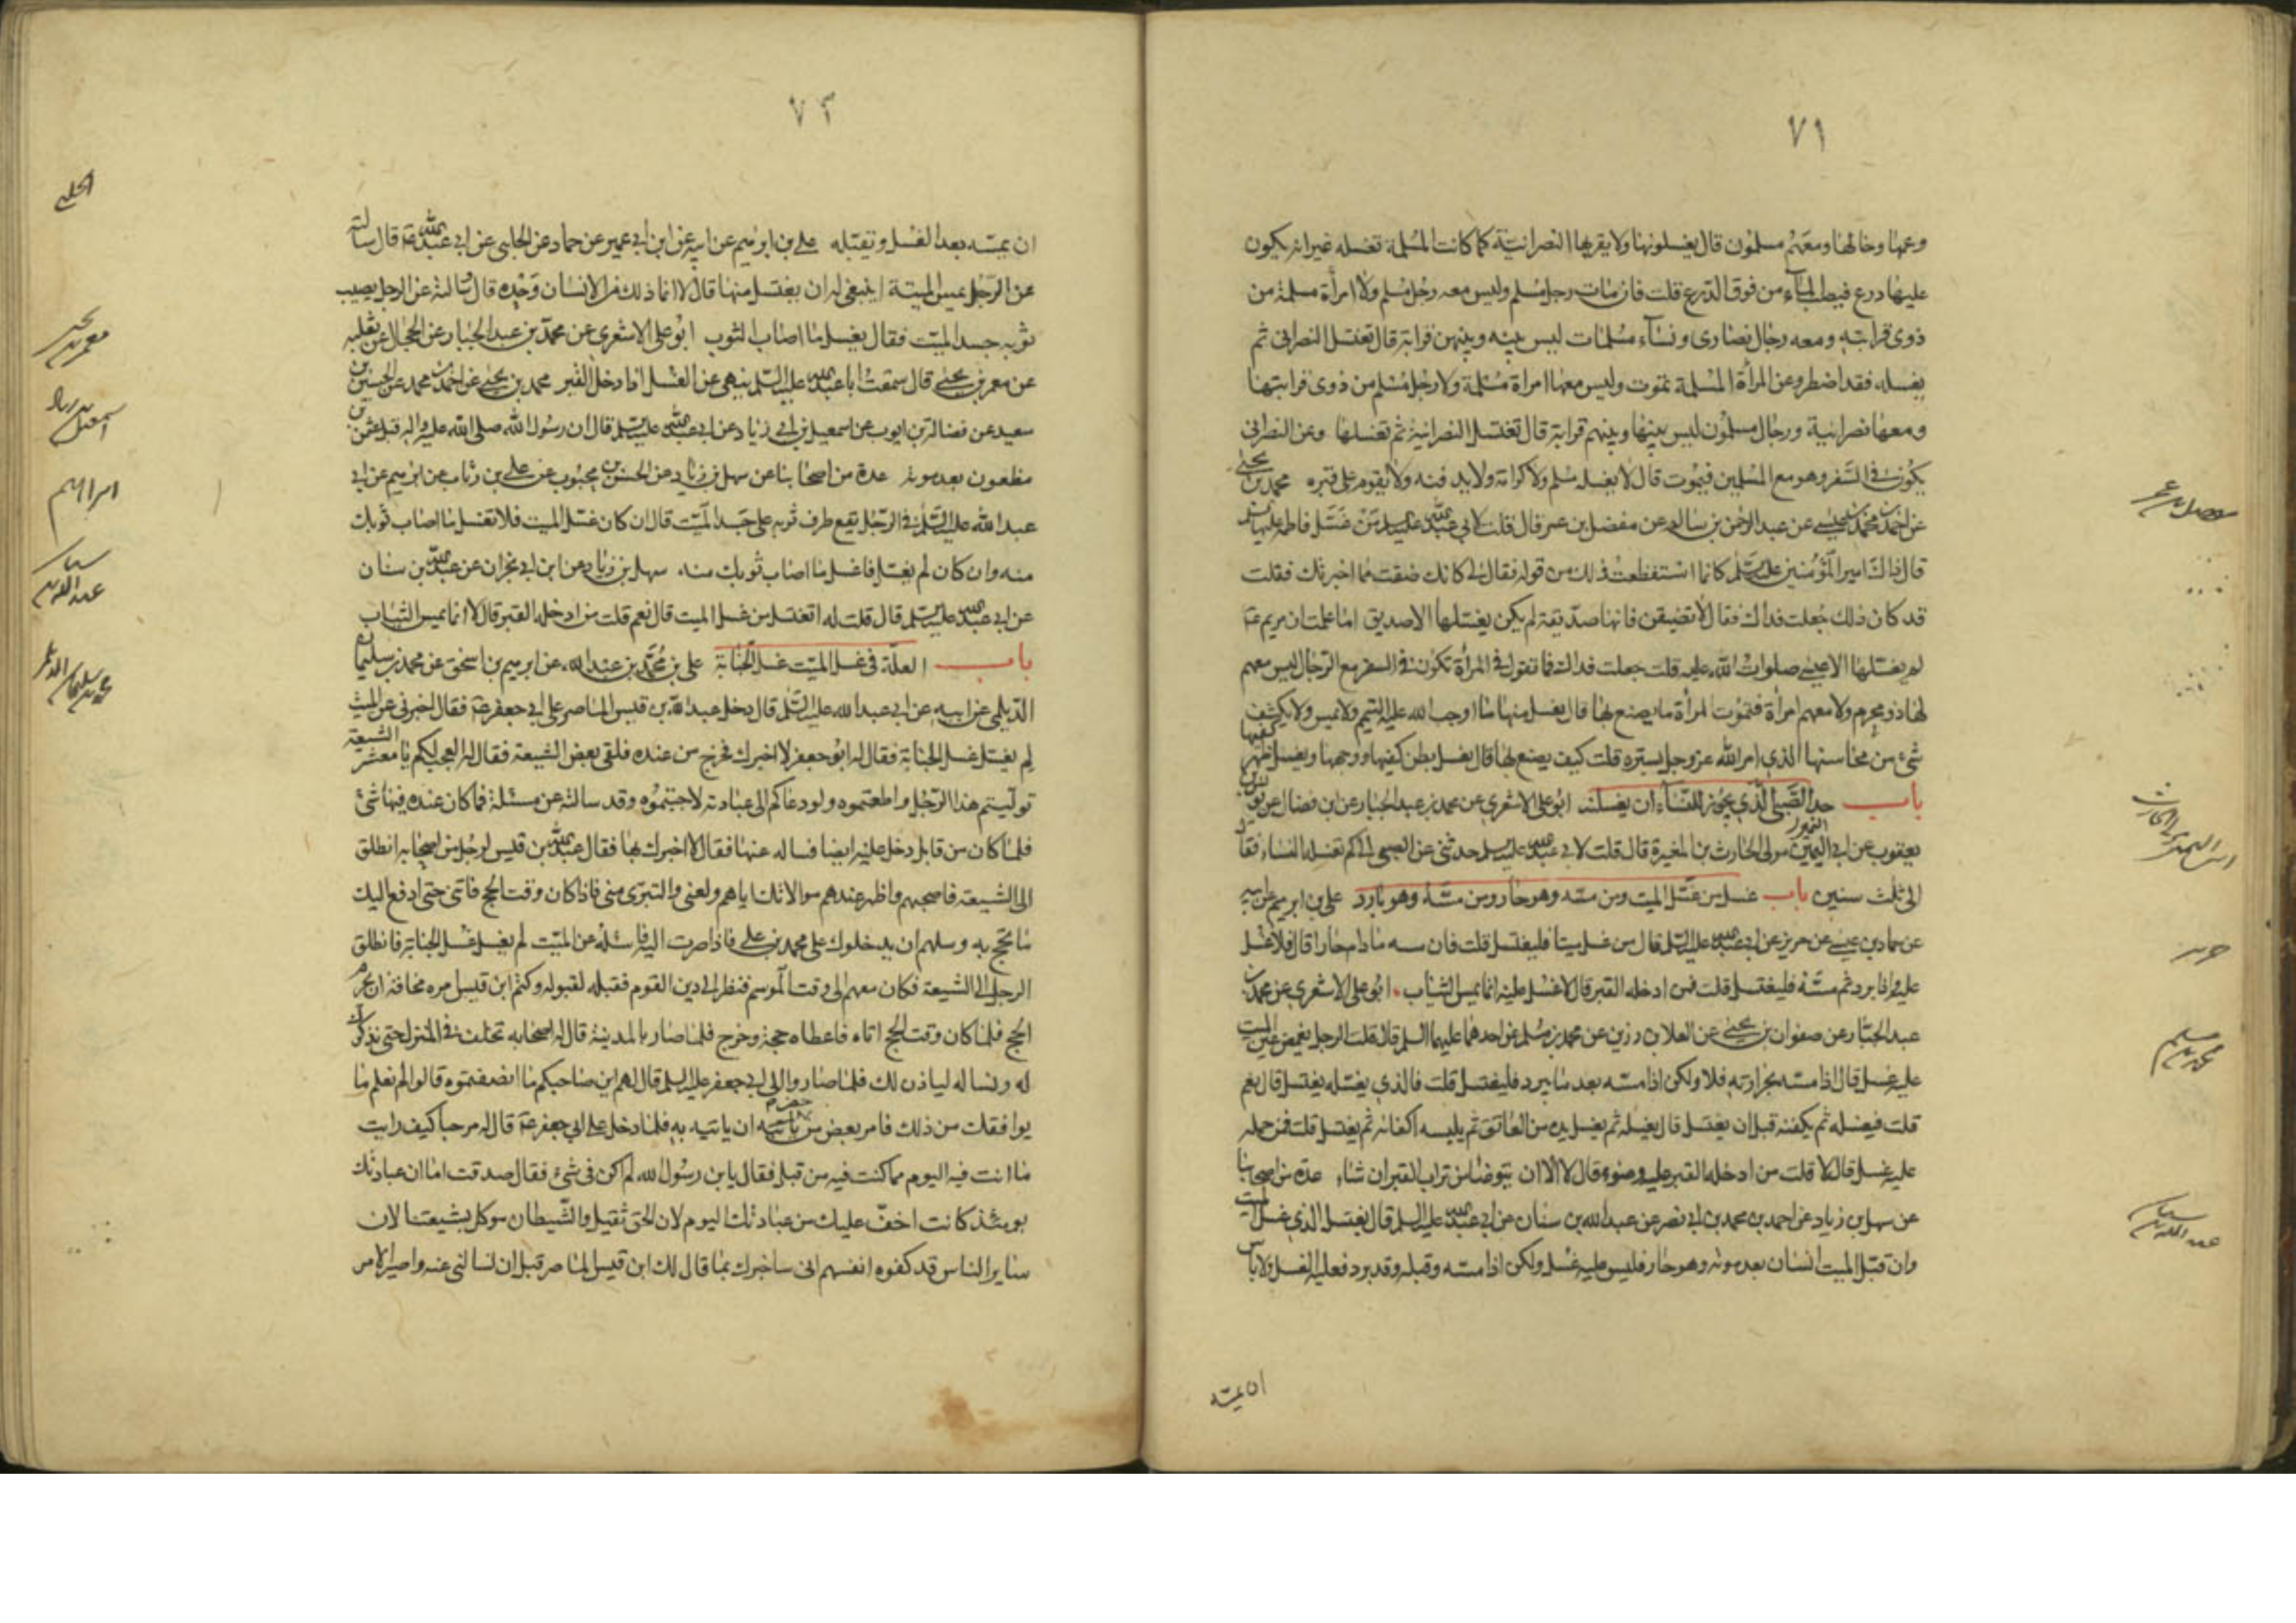 ٧١
وعمها وخالها ومعهم مسلمون قال يغسلونها ولا يقربها النصرانية كما كانت المسلمة تغسله غير انه يكون
عليها درع فيصب الماء من فوق الدرع قلت فان مات رجل مسلم وليس معه رجل مسلم ولا امرأة مسلمة من
ذوى قرابته ومعه رجال نصارى ونساء مسلمات ليس بينه وبينهن قرابة قال يغتسل النصرانى ثم
يغسله فقد اضطر وعن المرأة المسلمة تموت وليس معها امراة مسلمة ولا رجل مسلم من ذوى قرابتها
ومعها نصرانية ورجال مسلمون ليس بينها وبينهم قرابة قال تغتسل النصرانية ثم تغسلها وعن النصرانى
يكون فى السفر وهو مع المسلمين فيموت قال لا يغسله مسلم ولا كرامة ولا يدفنه ولا يقوم على قبره محمد بن يحيى
عن احمد بن محمد بن عيسى عن عبد الرحمن بن سالم عن مفضل بن عمر قال قلت لابى عبد الله عليه السلم من غسل فاطمه عليها السلم
قال ذاك امير المؤمنين عليه السلم كانما استفظعت ذلك من قوله فقال لى كانك ضقت مما اخبرتك فقلت
قد كان ذلك جعلت فداك فقال لا تضيقن فانها صديقة لم يكن يغسلها الا صديق اما علمت ان مريم ع
لم يغسلها الا عيسى صلوات الله عليه قلت جعلت فداك فما تقول فى المرأة تكون فى السفر مع الرجال ليس معهم
لها ذو محرم ولا معهم امرأة فتموت المرأة ما يصنع بها قال يغسل منها ما اوجب الله عليه التيمم ولا يمس ولا يكشف
شىء من محاسنها الذي امر الله عز وجل بستره قلت كيف يصنع بها قال يغسل بطن كفيها ووجهها ويغسل ظهر كفيها
باب حد الصبى الذي يجوز للنساء ان يغسلنه ابو على الاشعري عن محمد بن عبد الجبار عن ابن فضال عن يونس بن
يعقوب عن ابى النمير مولى الحارث بن المغيرة قال قلت لابى عبد الله عليه السلم حدثنى عن الصبى الى كم تغسله النساء فقال
الى ثلث سنين باب غسل من غسل الميت ومن مسه وهو حار ومن مسه وهو بارد على بن ابرهيم عن ابيه
عن حماد بن عيسى عن حريز عن ابى عبد الله عليه السلم قال من غسل ميتا فليغتسل قلت فان مسه ما دام حارا قال فلا غسل
عليه واذا برد ثم مسه فليغتسل قلت فمن ادخله القبر قال لا غسل عليه انما يمس الثياب ابو على الاشعري عن محمد بن
عبد الجبار عن صفوان بن يحيى عن العلا بن رزين عن محمد بن مسلم عن احدهما عليهما السلم قال قلت الرجل يغمض عين الميت
عليه غسل قال اذا مسه بحرارته فلا ولكن اذا مسه بعد ما يبرد فليغتسل قلت فالذي يغسله يغتسل قال نعم
قلت فيغسله ثم يكفنه قبل ان يغتسل قال يغسله ثم يغسل يده من العاتق ثم يلبسه اكفانه ثم يغتسل قلت فمن حمله
عليه غسل قال لا قلت من ادخله القبر عليه وضوء قال لا الا ان يتوضأ من تراب القبر ان شاء عدة من اصحابنا
عن سهل بن زياد عن احمد بن محمد بن ابى نصر عن عبد الله بن سنان عن ابى عبد الله عليه السلم قال يغتسل الذي غسل الميت
وان قبل الميت انسان بعد موته وهو حار فليس عليه غسل ولكن اذا مسه وقبله وقد برد فعليه الغسل ولا باس
ان يمسه
حريز
محمد بن مسلم
عبد الله بن سنان
٧٢
ان يمسه بعد الغسل ويقبله على بن ابرهيم عن ابيه عن ابن ابى عمير عن حماد عن الحلبى عن ابى عبد الله ع قال سالته
عن الرجل يمس الميتة اينبغى له ان يغتسل منها قال لا انما ذلك من الانسان وحده قال وسالته عن الرجل يصيب
ثوبه جسد الميت فقال يغسل ما اصاب الثوب ابو على الاشعري عن محمد بن عبد الجبار عن الحجال عن ثعلبه
عن معمر بن يحيى قال سمعت ابا عبد الله عليه السلم ينهى عن الغسل اذا دخل القبر محمد بن يحيى عن احمد بن محمد عن الحسين بن
سعيد عن فضالة بن ايوب عن اسمعيل بن ابى زياد عن ابى عبد الله عليه السلم قال ان رسول الله صلى الله عليه واله قبل عثمن بن
مظعون بعد موته عدة من اصحابنا عن سهل بن زياد عن الحسن بن محبوب عن على بن رئاب عن ابرهيم عن ابى
عبد الله عليه السلم فى الرجل يقع طرف ثوبه على جسد الميت قال ان كان غسل الميت فلا تغسل ما اصاب ثوبك
منه وان كان لم يغسل فاغسل ما اصاب ثوبك منه سهل بن زياد عن ابن ابى نجران عن عبد الله بن سنان
عن ابى عبد الله عليه السلم قال قلت له اتغتسل من غسل الميت قال نعم قلت من ادخله القبر قال لا انما يمس الثياب
باب العلة فى غسل الميت غسل الجنابة على بن محمد بن عبد الله عن ابرهيم بن اسحق عن محمد بن سليمان
الديلمى عن ابيه عن ابى عبد الله عليه السلم قال دخل عبد الله بن قيس الماصر على ابى جعفر ع فقال اخبرنى عن الميت
لم يغسل غسل الجنابة فقال له ابو جعفر لا اخبرك فخرج من عنده فلقى بعض الشيعة فقال له العجب لكم يا معشر الشيعة
توليتم هذا الرجل واطعتموه ولو دعاكم الى عبادته لاجبتموه وقد سالته عن مسئلة فما كان عنده فيها شئ
فلما كان من قابل دخل عليه ايضا فساله عنها فقال لا اخبرك بها فقال عبد الله بن قيس لرجل من اصحابه انطلق
الى الشيعة فاصحبهم واظهر عندهم موالاتك اياهم ولعنى والتبرى منى فاذا كان وقت الحج فاتنى حتى ادفع اليك
ما تحج به وسلهم ان يدخلوك على محمد بن على فاذا صرت اليه فاسئله عن الميت لم يغسل غسل الجنابة فانطلق
الرجل الى الشيعة فكان معهم الى وقت الموسم فنظر الى دين القوم فقبله بقبوله وكتم ابن قيس امره مخافة ان يحرم
الحج فلما كان وقت الحج اتاه فاعطاه حجة وخرج فلما صار بالمدينة قال له اصحابه تخلف فى المنزل حتى نذكرك
له ونساله لياذن لك فلما صاروا الى ابى جعفر عليه السلم قال لهم اين صاحبكم ما انصفتموه قالوا لم نعلم ما
يوافقك من ذلك فامر بعض من حضره ان ياتيه به فلما دخل على ابى جعفر ع قال له مرحبا كيف رايت
ما انت فيه اليوم مما كنت فيه من قبل فقال يا بن رسول الله لم اكن فى شئ فقال صدقت اما ان عبادتك
يومئذ كانت اخف عليك من عبادتك اليوم لان الحق ثقيل والشيطان موكل بشيعتنا لان
سائر الناس قد كفوه انفسهم انى ساخبرك بما قال لك ابن قيس الماصر قبل ان تسالنى عنه واصير الامر
الحلبى
معمر بن يحيى
ابراهيم
عبد الله بن سنان